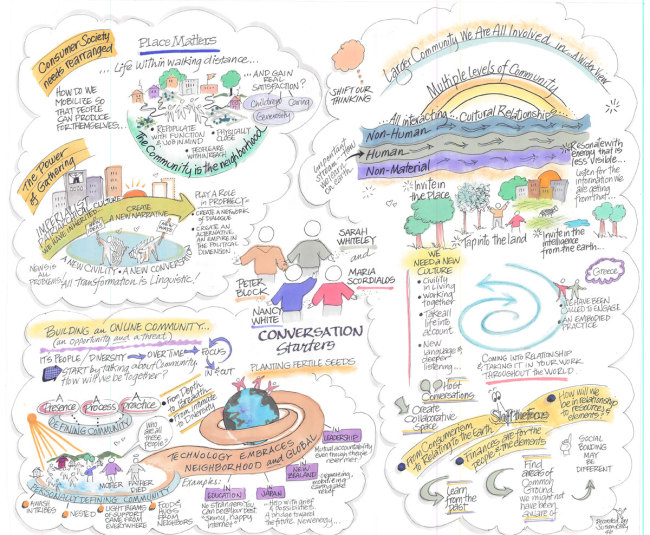 Consumer Society
needs rearranged
Place Matters
... Life within walking distance...
HOW TO WE
MOBILIZE SO
THAT PEOPLE
CAN PRODUCE
FOR THEMSELVES...
... AND GAIN
REAL
SATISFACTION?
Children
Caring
Generosity
• REPOPULATE
WITH FUNCTION
& JOB IN MIND
• PEOPLE ARE
WITHIN REACH
• PHYSICALLY
CLOSE
The Community is the neighborhood
The Power
of Gathering
IMPERIALIST CULTURE
WE HAVE INHERITED
CREATE
A NEW NARRATIVE
PLAY A ROLE
IN PROPHECY
• CREATE A NETWORK
OF DIALOGUE
• CREATE AN
ALTERNATIVE
AN EMPIRE
IN THE
POLITICAL
DIMENSION
A NEW CIVILITY • A NEW CONVERSATION
NEWS IS
ALL
PROBLEMS!
All Transformation is Linguistic!
SHIFT OUR
THINKING
Larger Community We Are All Involved in...
Multiple Levels of Community
All interacting... Cultural Relationships
Non-Human
Human
Non-Material
Resonate with
energy that is
less visible...
Listen for the
information we
are getting
from that
Invite in
the Place
Tap into the land
Invite in the
intelligence
from the earth...
SARAH
WHITELEY
and
MARIA
SCORDIALOS
PETER
BLOCK
NANCY
WHITE
CONVERSATION
Starters
PLANTING FERTILE SEEDS
WE
NEED A NEW
CULTURE
• Civility
in Living
• Working
together
• Take all
life into
account
• New
language &
deeper
listening...
Greece
HAVE BEEN
CALLED TO ENGAGE
AN EMBODIED
PRACTICE
COMING INTO RELATIONSHIP
& TAKING IT IN YOUR WORK
THROUGHOUT THE WORLD
Host
Conversations
Create
Collaborative
Space
Shift the focus
From Consumerism
to Relating to the Earth
• Finances are for the
people & the elements
How will we
be in relationship
to resources &
elements?
SOCIAL
BONDING MAY
BE DIFFERENT
Learn
from the
past
Find
areas of
Common
Ground
we might
not have
been
aware of
BUILDING an ONLINE COMMUNITY...
(an opportunity and a threat)
ITS PEOPLE / DIVERSITY
OVER TIME
FOCUS
IN & OUT
START by talking about Community
How will We be Together?
• From Depth
to Breadth
• From Intimate
to Diversity
A Presence
A Process
A Practice
DEFINING COMMUNITY
Who
are all
these
people?
MOTHER
FATHER
DIED
PERSONALLY DEFINING COMMUNITY
• AWASH
IN TRIBES
• NESTED
• LIGHT BEAMS
OF SUPPORT
CAME FROM
EVERYWHERE
• FOOD &
HUGS FROM
NEIGHBORS
TECHNOLOGY EMBRACES
NEIGHBORHOOD and GLOBAL
Examples:
IN LEADERSHIP
Mutual accountability
even though they've
never met
NEW
ZEALAND
IN
EDUCATION
IN
JAPAN
"Help with grief
& possibilities
A bridge toward
the future. New energy...